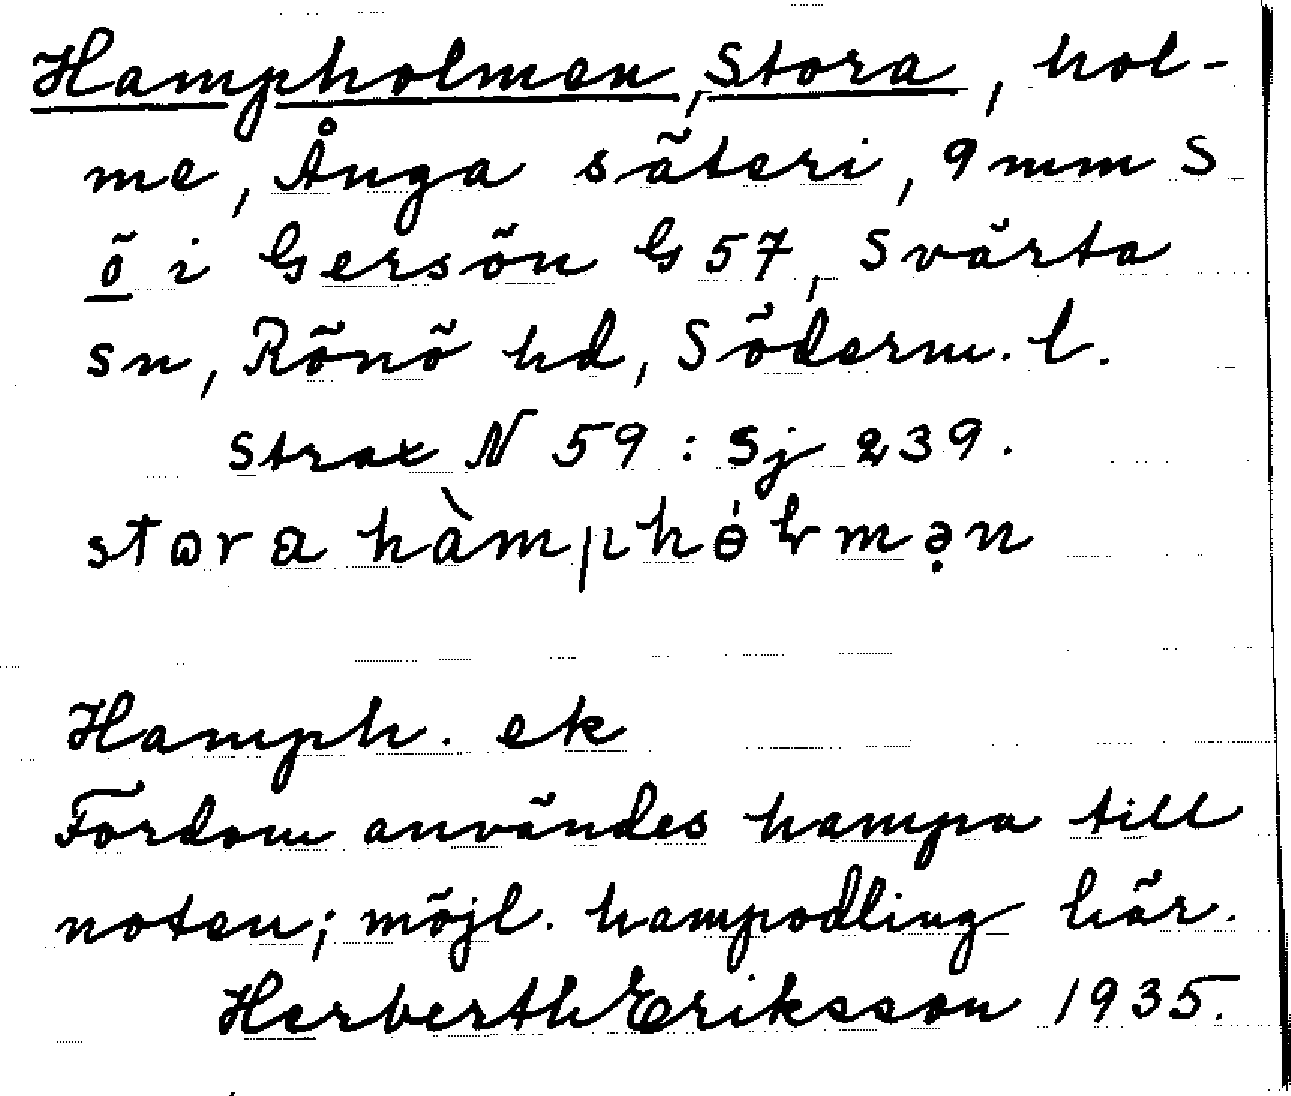 Hampholmen, Stora, hol-
me, Ånga säteri, 9 mm S
ö i Gersön G 57, Svärta
sn, Rönö hd, Söderm. l.
Strax N 59 : Sj 239.
stɷra hàmphɵ́ɫmə̣n
Hamph. ek
Fordom användes hampa till
noten; möjl. hampodling här.
Herberth Eriksson 1935.